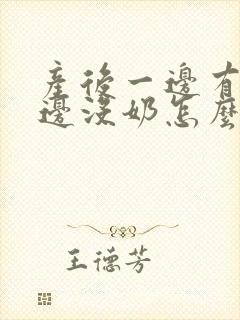 產後一邊有
邊沒奶怎麼
王德芳